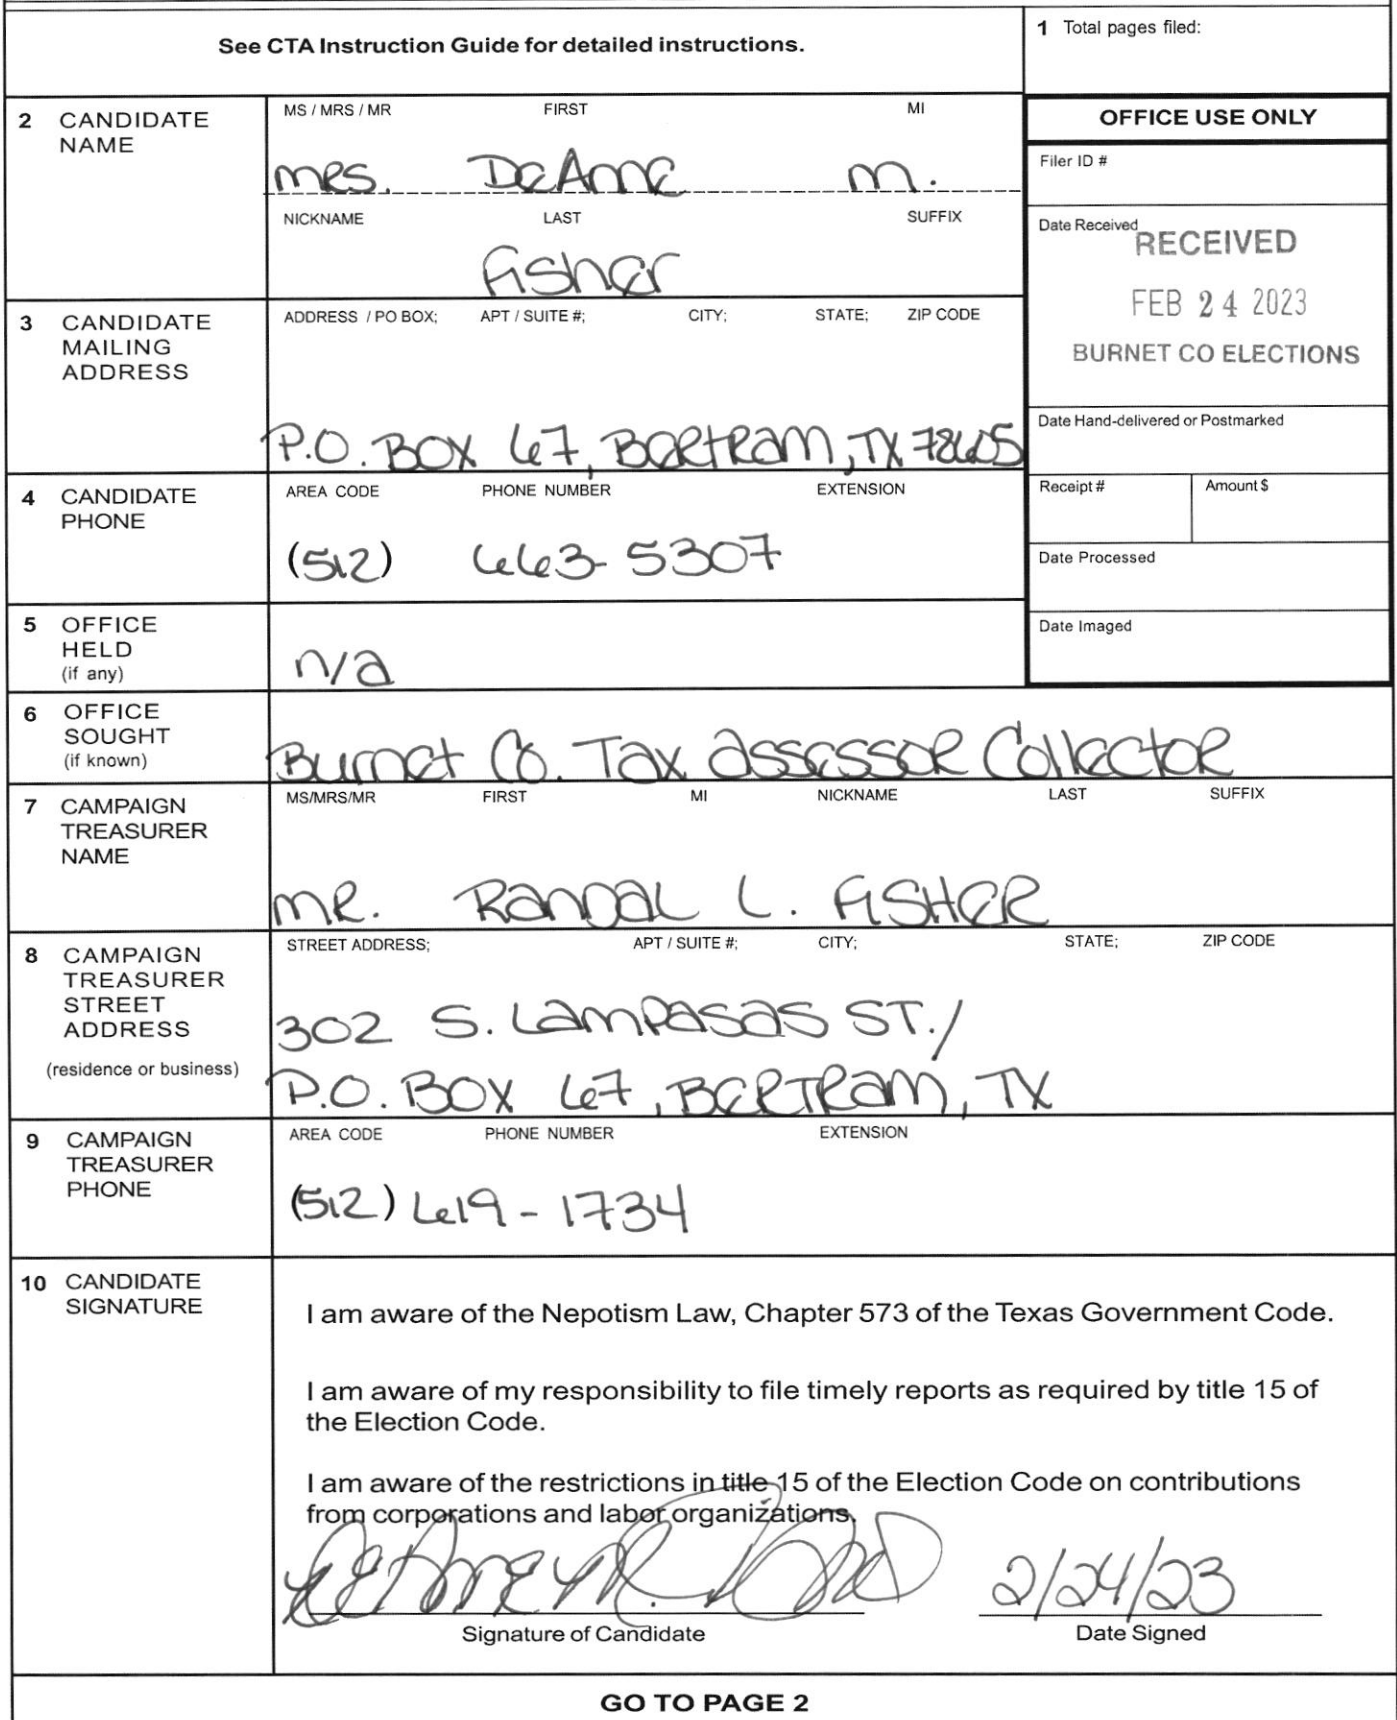 See CTA Instruction Guide for detailed instructions.
1 Total pages filed:
2 CANDIDATE NAME
MS / MRS / MR FIRST MI
mrs. DeAnne m.
NICKNAME LAST SUFFIX
Fisher
OFFICE USE ONLY
Filer ID #
Date Received
RECEIVED
FEB 24 2023
BURNET CO ELECTIONS
Date Hand-delivered or Postmarked
Receipt # Amount $
Date Processed
Date Imaged
3 CANDIDATE MAILING ADDRESS
ADDRESS / PO BOX; APT / SUITE #; CITY; STATE; ZIP CODE
P.O. BOX 67, BertRam, TX 78605
4 CANDIDATE PHONE
AREA CODE PHONE NUMBER EXTENSION
(512) 663-5307
5 OFFICE HELD (if any)
n/a
6 OFFICE SOUGHT (if known)
Burnet Co. Tax assessor Collector
7 CAMPAIGN TREASURER NAME
MS/MRS/MR FIRST MI NICKNAME LAST SUFFIX
mR. RanDaL L. FISHER
8 CAMPAIGN TREASURER STREET ADDRESS (residence or business)
STREET ADDRESS; APT / SUITE #; CITY; STATE; ZIP CODE
302 S. Lampasas ST./
P.O. BOX 67, BERTRam, TX
9 CAMPAIGN TREASURER PHONE
AREA CODE PHONE NUMBER EXTENSION
(512) 619-1734
10 CANDIDATE SIGNATURE
I am aware of the Nepotism Law, Chapter 573 of the Texas Government Code.
I am aware of my responsibility to file timely reports as required by title 15 of
the Election Code.
I am aware of the restrictions in title 15 of the Election Code on contributions
from corporations and labor organizations.
DeAnne M. 2/24/23
Signature of Candidate Date Signed
GO TO PAGE 2